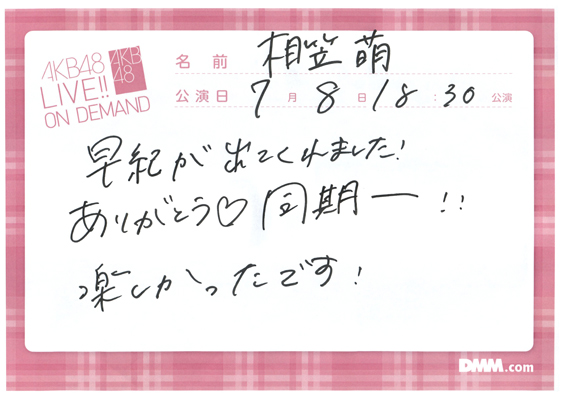 AKB48
LIVE!!
ON DEMAND
AKB
48
名前 相笠萌
公演日 7月8日 18:30 公演
早紀が出てくれました!
ありがとう♡同期ー!!
楽しかったです!
DMM.com